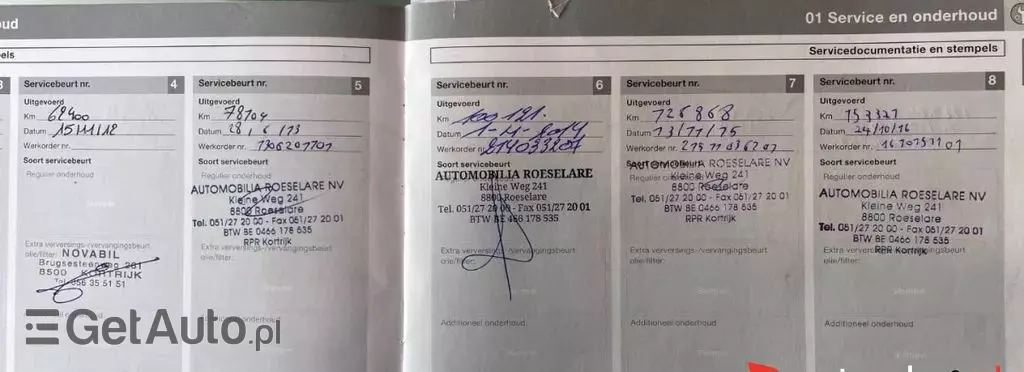 oud
els
3
Servicebeurt nr. 4
Uitgevoerd
Km 69400
Datum 15/11/12
Werkorder nr.
Soort servicebeurt
Regulier onderhoud
Extra verversings-/vervangingsbeurt
olie/filter:
NOVABIL
Brugsesteenweg 281
8500 KORTRIJK
Tel 056 35 51 51
Additioneel onderhoud
Servicebeurt nr. 5
Uitgevoerd
Km 78704
Datum 28/6/13
Werkorder nr. 1306201701
Soort servicebeurt
Regulier onderhoud
AUTOMOBILIA ROESELARE NV
Kleine Weg 241
8800 Roeselare
Tel. 051/27 20 00 - Fax 051/27 20 01
BTW BE 0466 178 535
RPR Kortrijk
Extra verversings-/vervangingsbeurt
olie/filter:
Additioneel onderhoud
01 Service en onderhoud
Servicedocumentatie en stempels
Servicebeurt nr. 6
Uitgevoerd
Km 100 121.
Datum 1-4-2014
Werkorder nr. 214033207
Soort servicebeurt
AUTOMOBILIA ROESELARE
Kleine Weg 241
8800 Roeselare
Tel. 051/27 20 00 - Fax 051/27 20 01
BTW BE 466 178 535
Extra verversings-/vervangingsbeurt
olie/filter:
Additioneel onderhoud
Servicebeurt nr. 7
Uitgevoerd
Km 126868
Datum 13/11/15
Werkorder nr. 21511036201
Soort servicebeurt
AUTOMOBILIA ROESELARE NV
Regulier onderhoud
Kleine Weg 241
8800 Roeselare
Tel. 051/27 20 00 - Fax 051/27 20 01
BTW BE 0466 178 535
RPR Kortrijk
Extra verversings-/vervangingsbeurt
olie/filter:
Additioneel onderhoud
Servicebeurt nr. 8
Uitgevoerd
Km 157327
Datum 24/10/16
Werkorder nr.
Soort servicebeurt
Regulier onderhoud
AUTOMOBILIA ROESELARE NV
Kleine Weg 241
8800 Roeselare
Tel. 051/27 20 00 - Fax 051/27 20 01
BTW BE 0466 178 535
RPR Kortrijk
Extra verversings-/vervangingsbeurt
olie/filter:
Additioneel onderhoud
GetAuto.pl